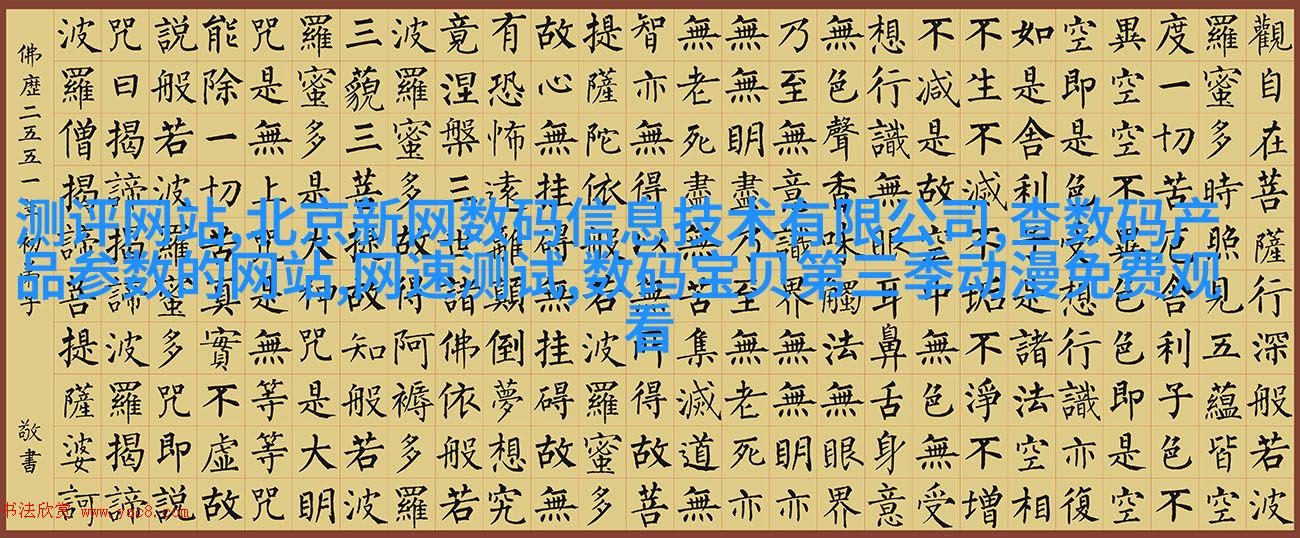 测评网站,北京新网数码信息技术有限公司,查数码产
品参数的网站,网速测试,数码宝贝第三季动漫免费观
看
觀自在菩薩行深般若波
羅蜜多時照見五蘊皆空
度一切苦厄舍利子色不
異空空不異色色即是空
空即是色受想行識亦復
如是舍利子是諸法空相
不生不滅不垢不淨不增
不減是故空中無色無受
想行識無眼耳鼻舌身意
無色聲香味觸法無眼界
乃至無意識界無無明亦
無無明盡乃至無老死亦
無老死盡無苦集滅道無
智亦無得以無所得故菩
提薩陀依般若波羅蜜多
故心無挂礙無挂礙故無
有恐怖遠離顛倒夢想究
竟涅槃三世諸佛依般若
波羅蜜多故得阿褥多羅
三藐三菩提故知般若波
羅蜜多是大神咒是大明
咒是無上咒是無等等咒
能除一切苦真實不虛故
說般若波羅蜜多咒即說
咒曰揭諦揭諦波羅揭諦
波羅僧揭諦菩提薩婆訶
佛歷二五五一年初
敬書
书法欣赏 www.yac8.com